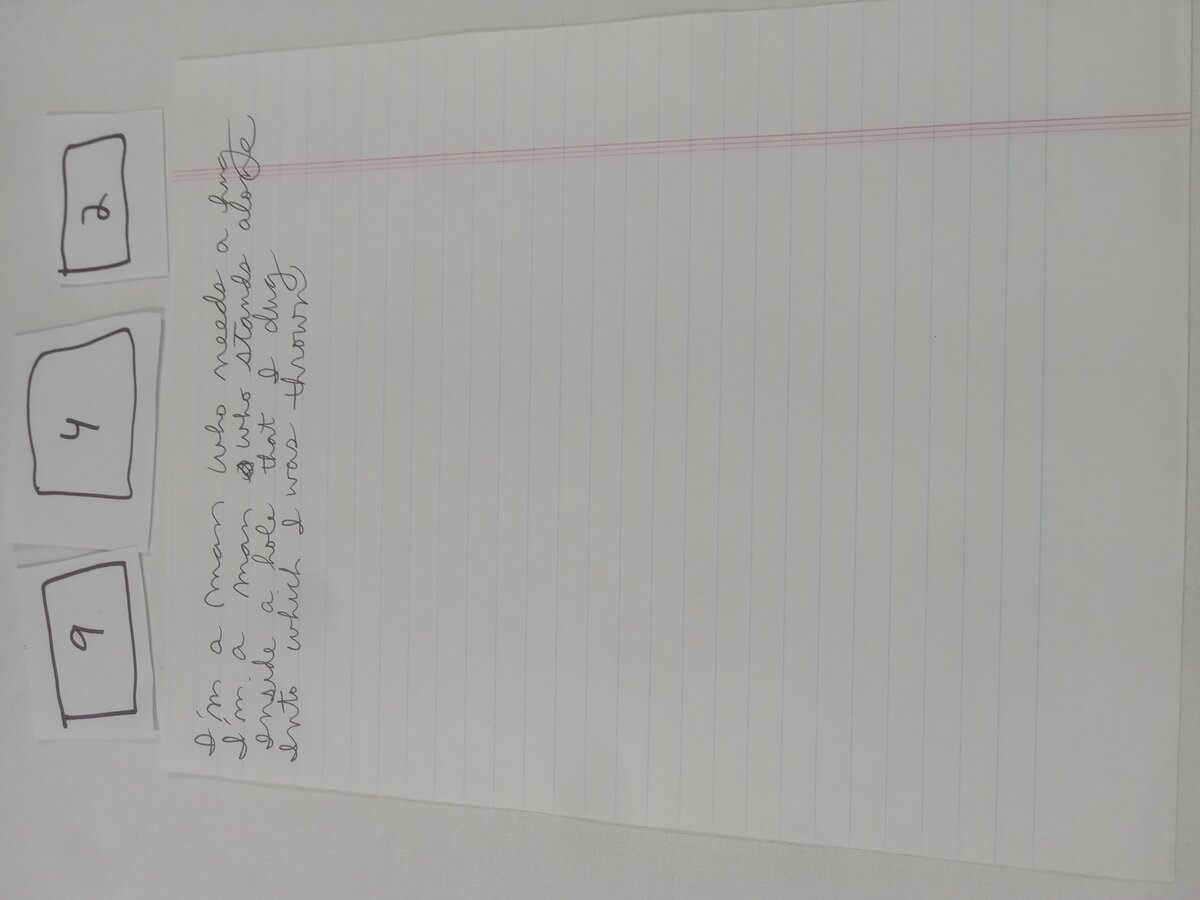 9 4 2
I'm a man who needs a hug
I'm a man who stands alone
Inside a hole that I dug
Into which I was thrown